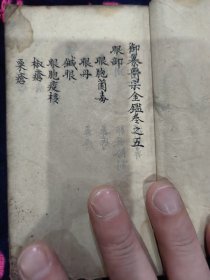 御纂醫宗金鑑卷之五
眼部
眼胞菌毒
眼丹
鍼眼
眼胞痰核
椒瘡
粟瘡